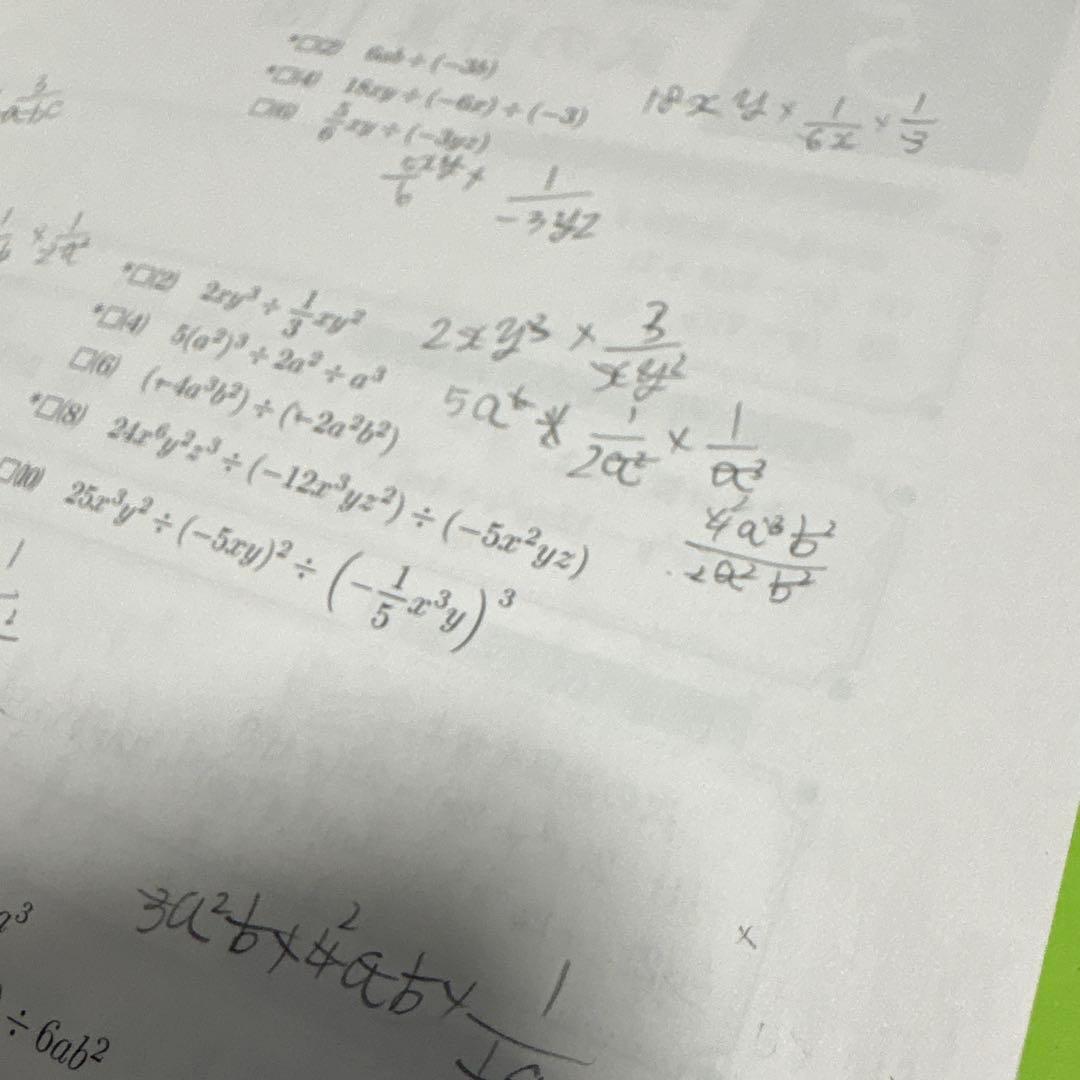 *□(2) 6ab ÷ (−3b)
*□(4) 18xy ÷ (−6x) ÷ (−3)
18xy × 1/6x × 1/3
□(6) 5/6 xy ÷ (−3yz)
3/abc
xy × 1/−3yz
× 1/2a²
*□(2) 2xy³ ÷ 1/3 xy²
2xy³ × 3/xy²
*□(4) 5(a²)³ ÷ 2a² ÷ a³
5a⁶ × 1/2a² × 1/a³
□(6) (−4a³b²) ÷ (−2a²b²)
4²a³b²/2a²b²
*□(8) 24x⁶y²z³ ÷ (−12x³yz²) ÷ (−5x²yz)
□(10) 25x³y² ÷ (−5xy)² ÷ (−1/5 x³y)³
3a²b × 4²ab × 1/
×
a³
÷ 6ab²